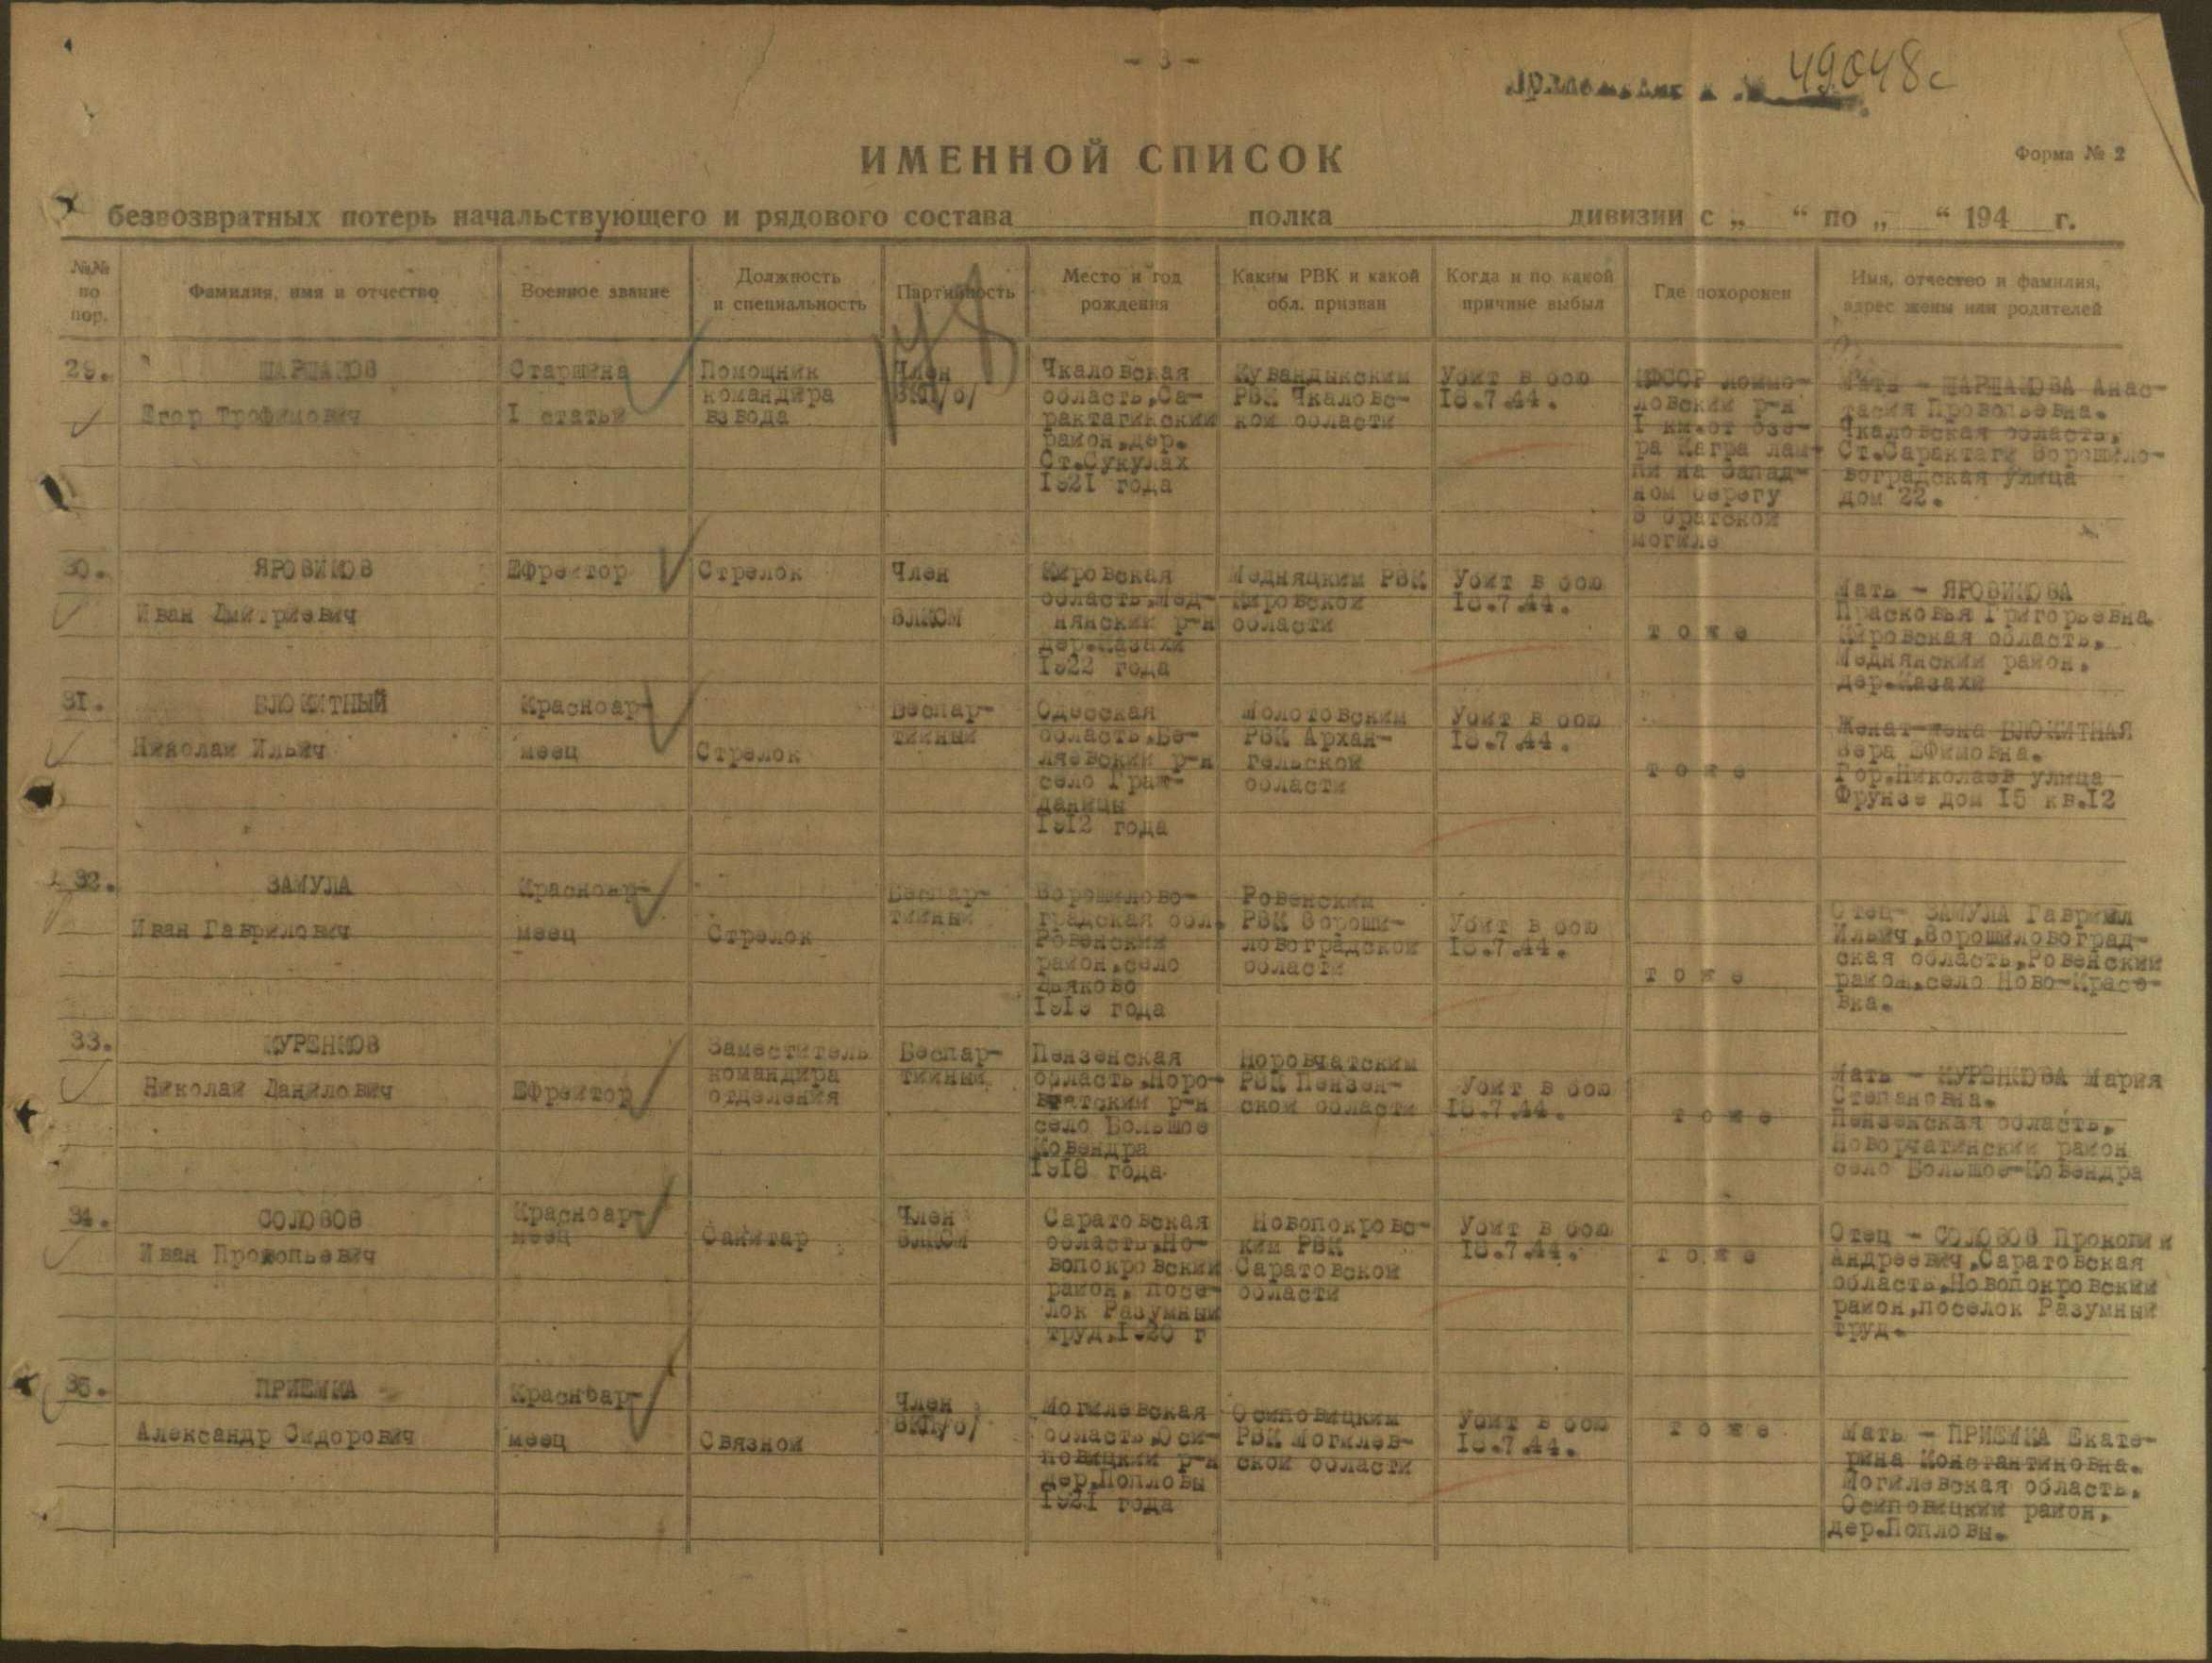 - 3 -
49048с
ИМЕННОЙ СПИСОК
Форма № 2
безвозвратных потерь начальствующего и рядового состава полка дивизии с „ “ по „ “ 194 г.
№№ по пор.
Фамилия, имя и отчество
Военное звание
Должность и специальность
Партийность
Место и год рождения
Каким РВК и какой обл. призван
Когда и по какой причине выбыл
Где похоронен
Имя, отчество и фамилия, адрес жены или родителей
29.
ШАРШАКОВ
Егор Трофимович
Старшина
I статьи
Помощник
командира
взвода
Член
ВКП/б/
Чкаловская
область,Са-
рактагинский
район,дер.
Ст.Сукулах
1921 года
Кувандыкским
РВК Чкаловс-
кой области
Убит в бою
18.7.44.
КФССР
ловский р-н
I км.от озе-
ра Кагра лам-
пи на Запад-
ном берегу
В братской
могиле
Мать - ШАРШАКОВА Анас-
тасия
Чкаловская область,
Ст.Сарактаги Ворошило-
воградская улица
дом 22.
30.
ЯРОВИКОВ
Иван Дмитриевич
Ефрейтор
Стрелок
Член
ВЛКСМ
Кировская
область,Мед-
нянский р-н
дер.Казахи
1922 года
Медняцким РВК
Кировской
области
Убит в бою
18.7.44.
т о ж е
Мать - ЯРОВИКОВА
Прасковья Григорьевна
Кировская область,
Меднянский район.
дер.Казахи
31.
БЛОКИТНЫЙ
Николай Ильич
Красноар-
меец
Стрелок
Беспар-
тийный
Одесская
область,Бе-
ляевский р-н
село Граж-
даницы
1912 года
Молотовским
РВК Архан-
гельской
области
Убит в бою
18.7.44.
т о ж е
Женат-жена БЛОКИТНАЯ
Вера Ефимовна.
Гор.Николаев улица
Фрунзе дом 15 кв.12
32.
ЗАМУЛА
Иван Гаврилович
Красноар-
меец
Стрелок
Беспар-
тийный
Ворошилово-
градская обл.
Ровенский
район,село
Дьяково
1919 года
Ровенским
РВК Вороши-
ловоградской
области
Убит в бою
18.7.44.
т о ж е
Отец- ЗАМУЛА Гавриил
Ильич,Ворошиловоград-
ская область,Ровенский
район,село Ново-Красо-
вка.
33.
КУРЕНКОВ
Николай Данилович
Ефрейтор
Заместитель
командира
отделения
Беспар-
тийный
Пензенская
область,Норо-
вчатским р-н
село Большое
Ковендра
1918 года
Норовчатским
РВК Пензен-
ской области
Убит в бою
18.7.44.
т о ж е
Мать - КУРЕНКОВА Мария
Степановна.
Пензенская область,
Новорчатинский район
село Большое-Ковендра
34.
СОЛОВОВ
Иван Прокопьевич
Красноар-
меец
Санитар
Член
ВЛКСМ
Саратовская
область,Но-
вопокровский
район, посе-
лок Разумный
труд,1920 г
Новопокровс-
ким РВК
Саратовской
области
Убит в бою
18.7.44.
т о ж е
Отец - СОЛОВОВ Прокопий
Андреевич,Саратовская
область,Новопокровский
район,поселок Разумный
труд.
35.
ПРИЕМКА
Александр Сидорович
Красноар-
меец
Связной
Член
ВКП/б/
Могилевская
область,Оси-
повицкий р-н
дер.Попловы
1921 года
Осиповицким
РВК Могилев-
ской области
Убит в бою
18.7.44.
т о ж е
Мать - ПРИЕМКА Екате-
рина Константиновна.
Могилевская область,
Осиповицкий район,
дер.Попловы.